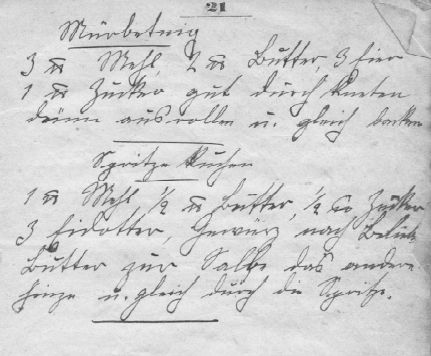 21
Mürbeteig
3 ℔ Mehl, 2 ℔ Butter, 3 Eier
1 ℔ Zucker gut durch kneten
dünn ausrollen u. gleich backen
Spritze Kuchen
1 ℔ Mehl ½ ℔ Butter, ½ ℔ Zucker
3 Eidotter, Gewürz nach Belieb.
Butter zur Salbe das andere
hinzu u. gleich durch die Spritze.